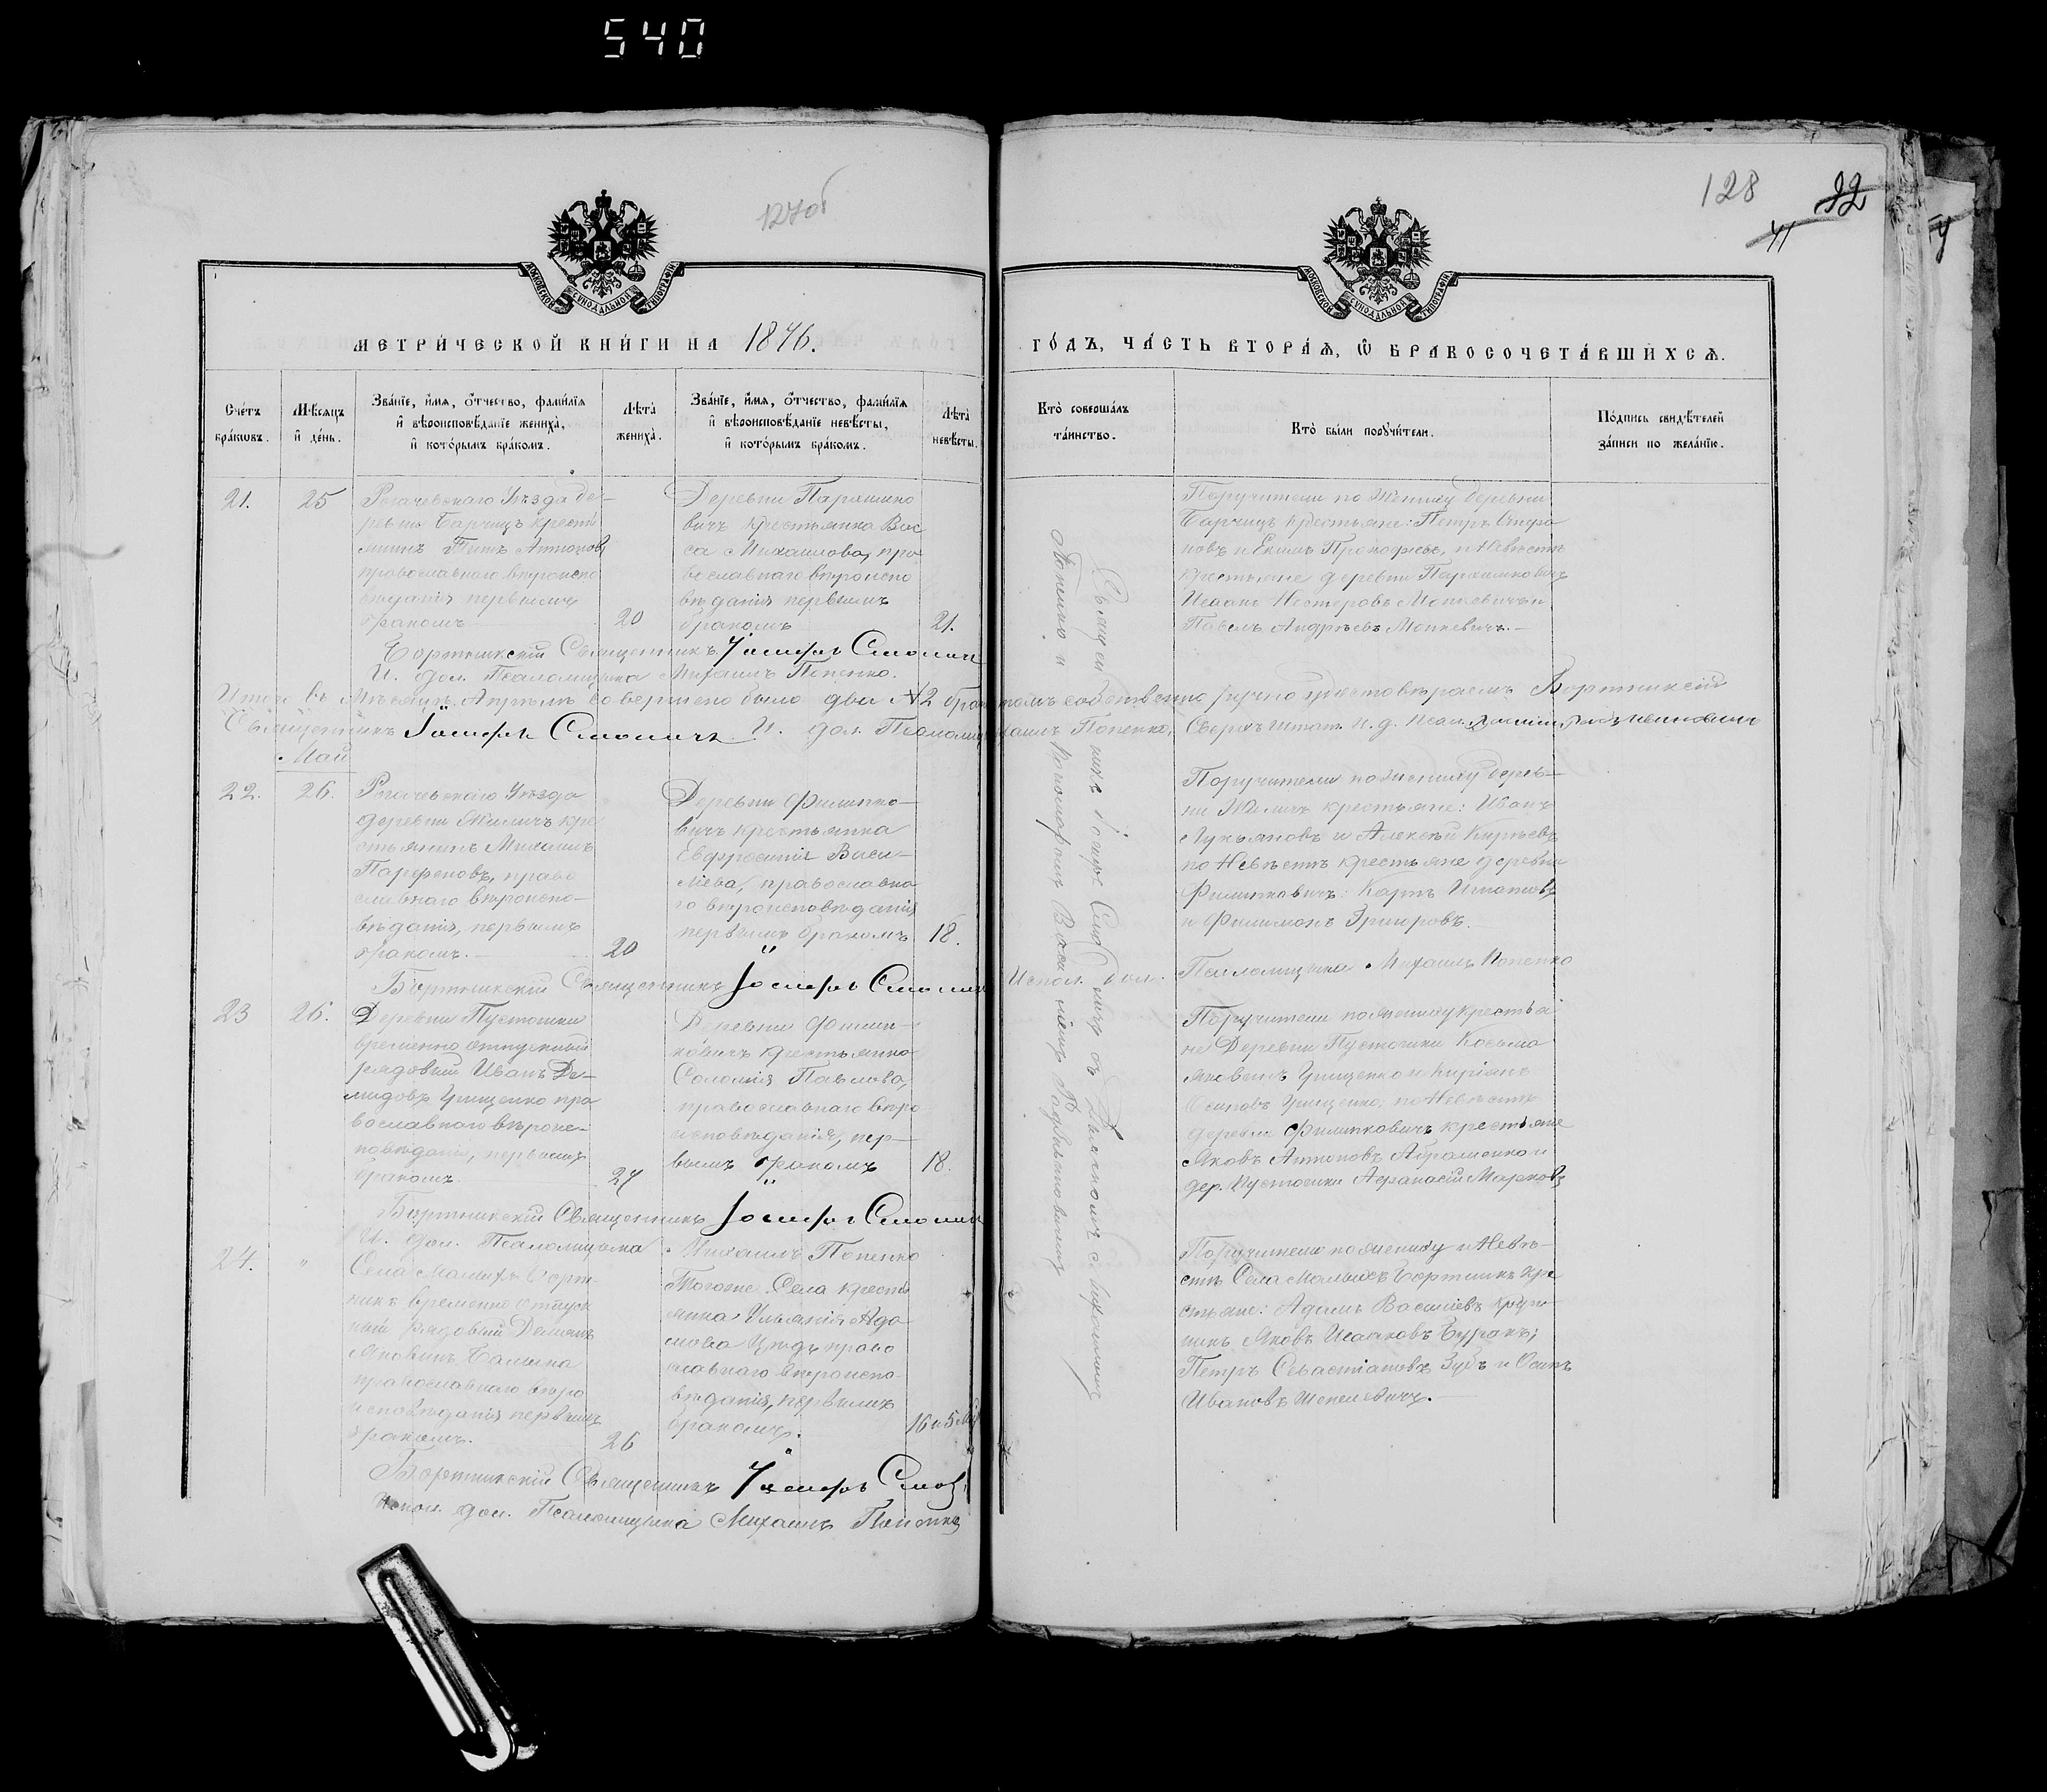 540
127об
128
92
41
МОСКОВСКОЙ СѴНОДАЛЬНОЙ ТИПОГРАФІИ
МОСКОВСКОЙ СѴНОДАЛЬНОЙ ТИПОГРАФІИ
МЕТРИ́ЧЕСКОЙ КНИ́ГИ НА 1876.
ГО́ДЪ, ЧА́СТЬ ВТОРА́Ѧ, Ѽ БРАКОСОЧЕТА́ВШИХСѦ.
Сче́тъ
бра́ковъ.
Мѣ́сяцъ
и҆ де́нь.
Зва́нїе, и҆́мѧ, ѻ҆́тчество, фами́лїѧ
и҆ вѣроисповѣ́данїе жениха̀,
и҆ кото́рымъ бра́комъ.
Лѣ́та
жениха̀.
Зва́нїе, и҆́мѧ, ѻ҆́тчество, фами́лїѧ
и҆ вѣроисповѣ́данїе невѣ́сты,
и҆ кото́рымъ бра́комъ.
Лѣ́та
невѣ́сты.
Кто̀ соверша́лъ
та́инство.
Кто̀ бы́ли порꙋчи́тели.
По́дпись свидѣ́телей
за́писи по жела́нїю.
21.
25
Рогачевскаго Уѣзда де-
ревни Барчицъ крестя
нинъ Титъ Антоновъ
православнаго вѣроиспо
вѣданія первымъ
бракомъ
20
Деревни
вичъ крестьянка Вас
са Михаилова, пра-
вославнаго вѣроиспо
вѣданія первымъ
бракомъ
21.
Поручители по Жениху деревни
Барчицъ крестьяне: Петръ
новъ и Екимъ Прокофьевъ, и Невѣстѣ
крестьяне деревни
Исаакъ Нестеровъ Монкевичъ и
Павелъ Андреевъ Монкевичъ.—
Бортникскій Священникъ Іосифъ Смоличъ
И. дол. Псаломщика Михаилъ Попенко.
Итого въ Мѣсяцѣ Апрѣлѣ совершено было два №2 брака
Бортникскій
Священникъ Іосифъ Смоличъ. И. дол. Псаломщ. Михаилъ Попенко,
Май
22.
26.
Рогачевскаго Уѣзда
деревни Жиличъ кре
стьянинъ Михаилъ
Парфеновъ, право
славнаго вѣроиспо-
вѣданія, первымъ
бракомъ.
20
Деревни Филипко-
вичъ крестьянка
Евфросинія Васи-
ліева, православна
го вѣроисповѣданія
первымъ бракомъ
18.
Поручители по жениху дерев-
ни Жиличъ крестьяне: Иванъ
Лукьяновъ и Алексѣй
по Невѣстѣ крестьяне деревни
Филипковичъ: Карпъ Игнатовъ
и Филимонъ
Бортникскій Священникъ Іосифъ Смоличъ
Испол. дол. Псаломщика Михаилъ Попенко
23
26.
Деревни Пустошки
временно отпускный
рядовый Иванъ Де-
мидовъ Грищенко пра
вославнаго вѣроис-
повѣданія, первымъ
бракомъ
27
Деревни Филип-
ковичъ крестьянка
Соломія Павлова,
православнаго вѣро
исповѣданія, пер-
вымъ бракомъ
18.
Поручители по жениху крестья
не Деревни Пустошки Косьма
Яковлевъ Грищенко и
Осиповъ Грищенко; по Невѣстѣ
деревни Филипковичъ крестьяне
Яковъ Антоновъ Абраменко и
дер. Пустошки Афанасій Марковъ
Бортникскій Священникъ Іосифъ Смоличъ
И. дол. Псаломщика Михаилъ Попенко
24.
"
Села Малыхъ Борт-
никъ временно отпуск
ный рядовый
Яковлевъ
православнаго вѣро
исповѣданія первымъ
бракомъ.
26
Тогоже Села кресть
янка Ульянія Ада
мова право
славнаго вѣроиспо-
вѣданія, первымъ
бракомъ.
16 и 5 мѣ
Поручители по жениху и Невѣ-
стѣ Села Малыхъ Бортникъ кре
стьяне: Адамъ Васильевъ
Яковъ Исааковъ Буракъ;
Петръ Севастіановъ Зубъ и Осипъ
Ивановъ Шепелевичъ.—
Бортникскій Священникъ Іосифъ Смол
Испол. дол. Псаломщика Михаилъ Попенко
Священникъ Іосифъ Смоличъ съ с. Михаиломъ
Попенко и